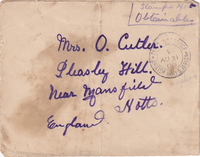 Stamps Not
Obtainable
Mrs. O. Cutler.
Pleasley Hill.
Near Mansfield
Notts.
England.